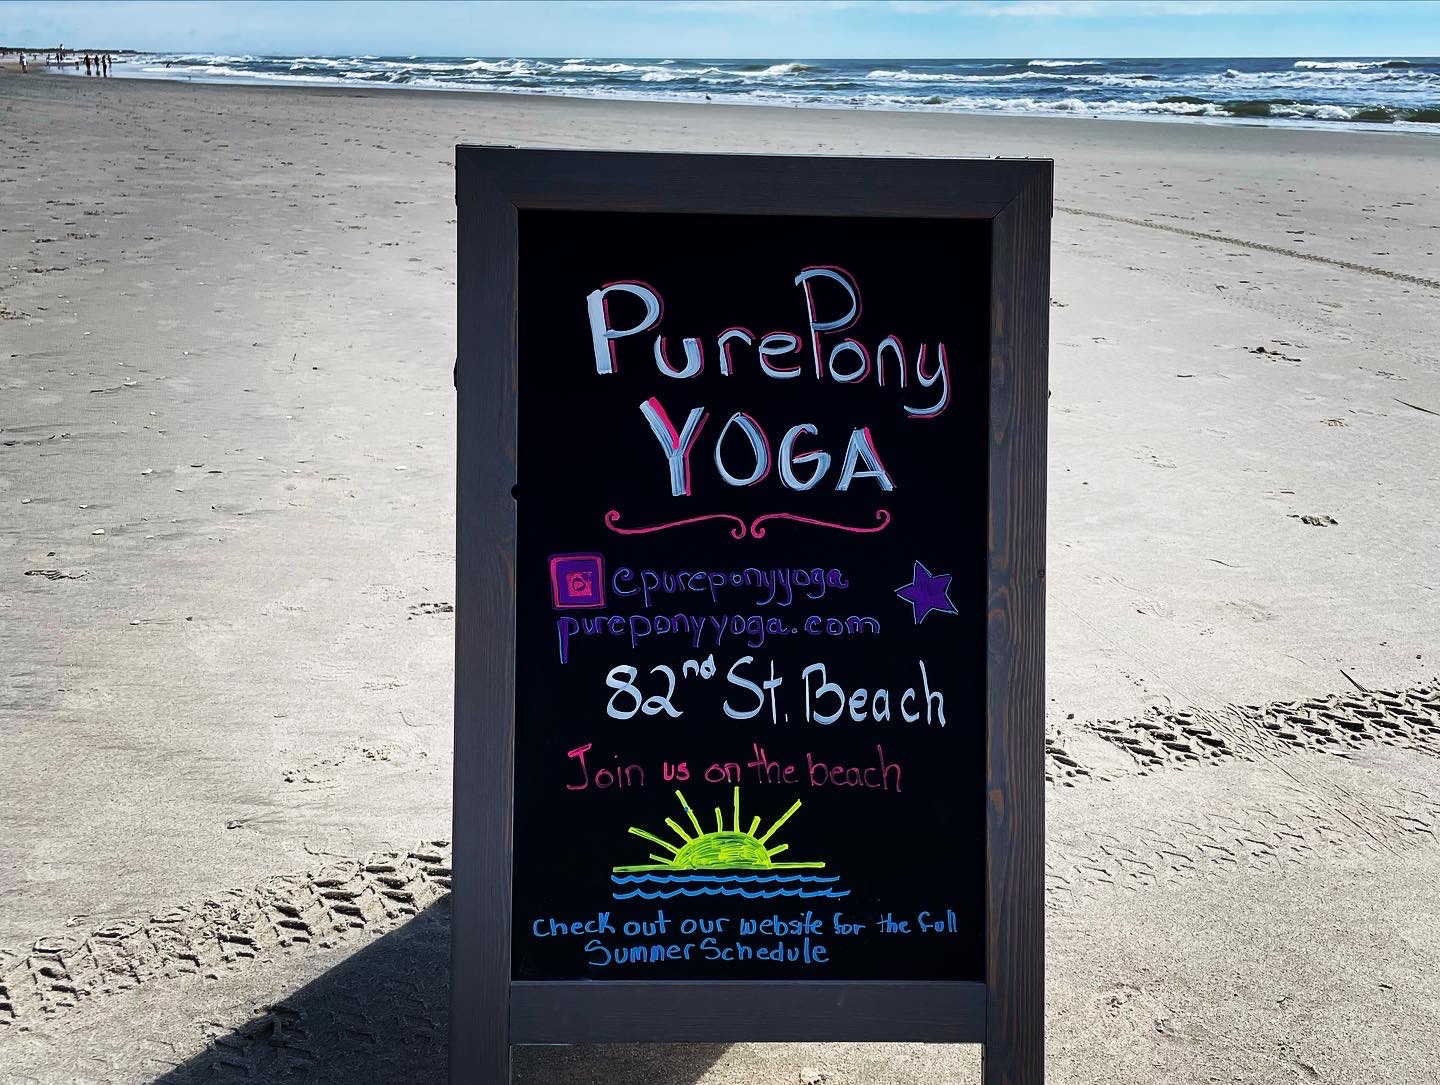 PurePony
YOGA
@pureponyyoga
pureponyyoga.com
82nd St. Beach
Join us on the beach
Check out our website for the full
Summer Schedule